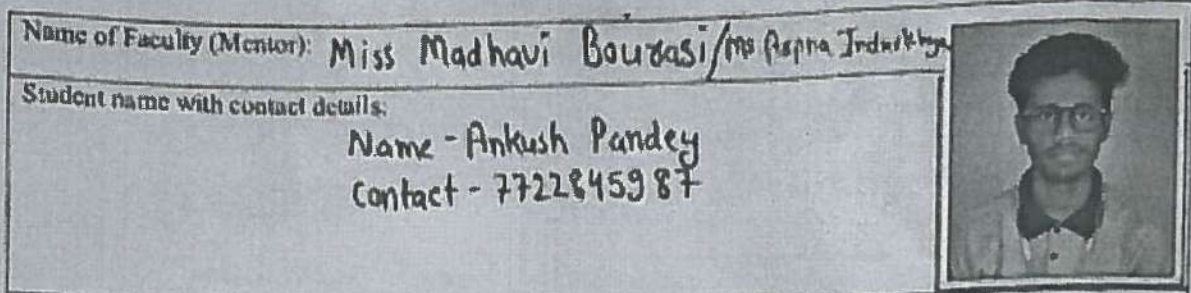 Name of Faculty (Mentor): Miss Madhavi Bourasi/Ms
Student name with contact details:
Name - Ankush Pandey
Contact - 7722845987